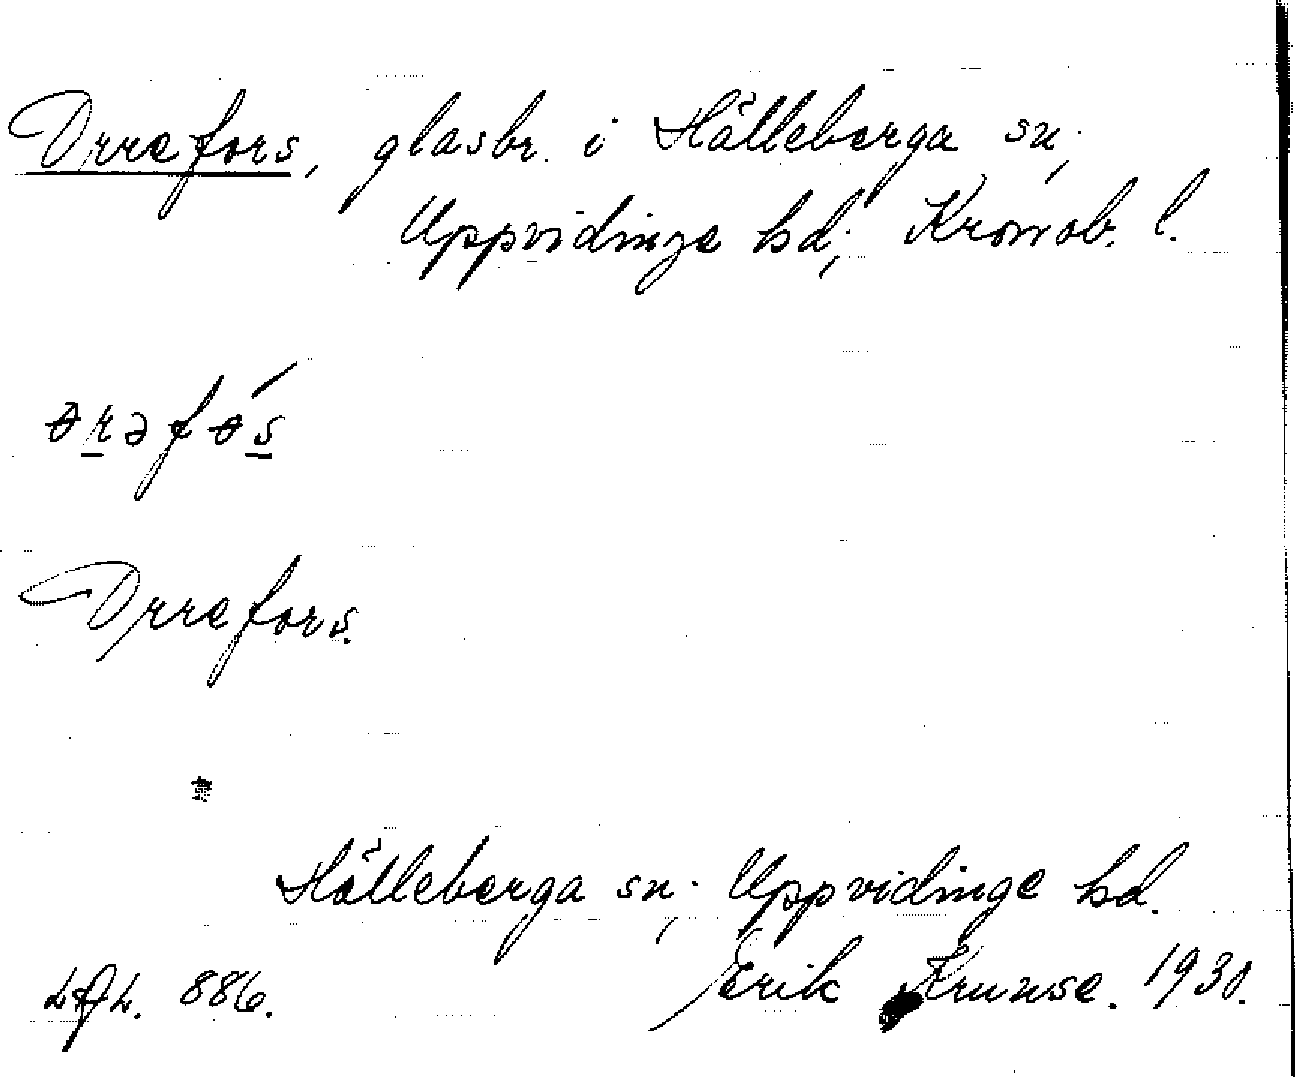 Orrefors, glasbr. i Hälleberga sn,
Uppvidinge hd, Kronob. l.
Orrefors.
Hälleberga sn, Uppvidinge hd.
LAL. 886. Erik Krunse. 1930.